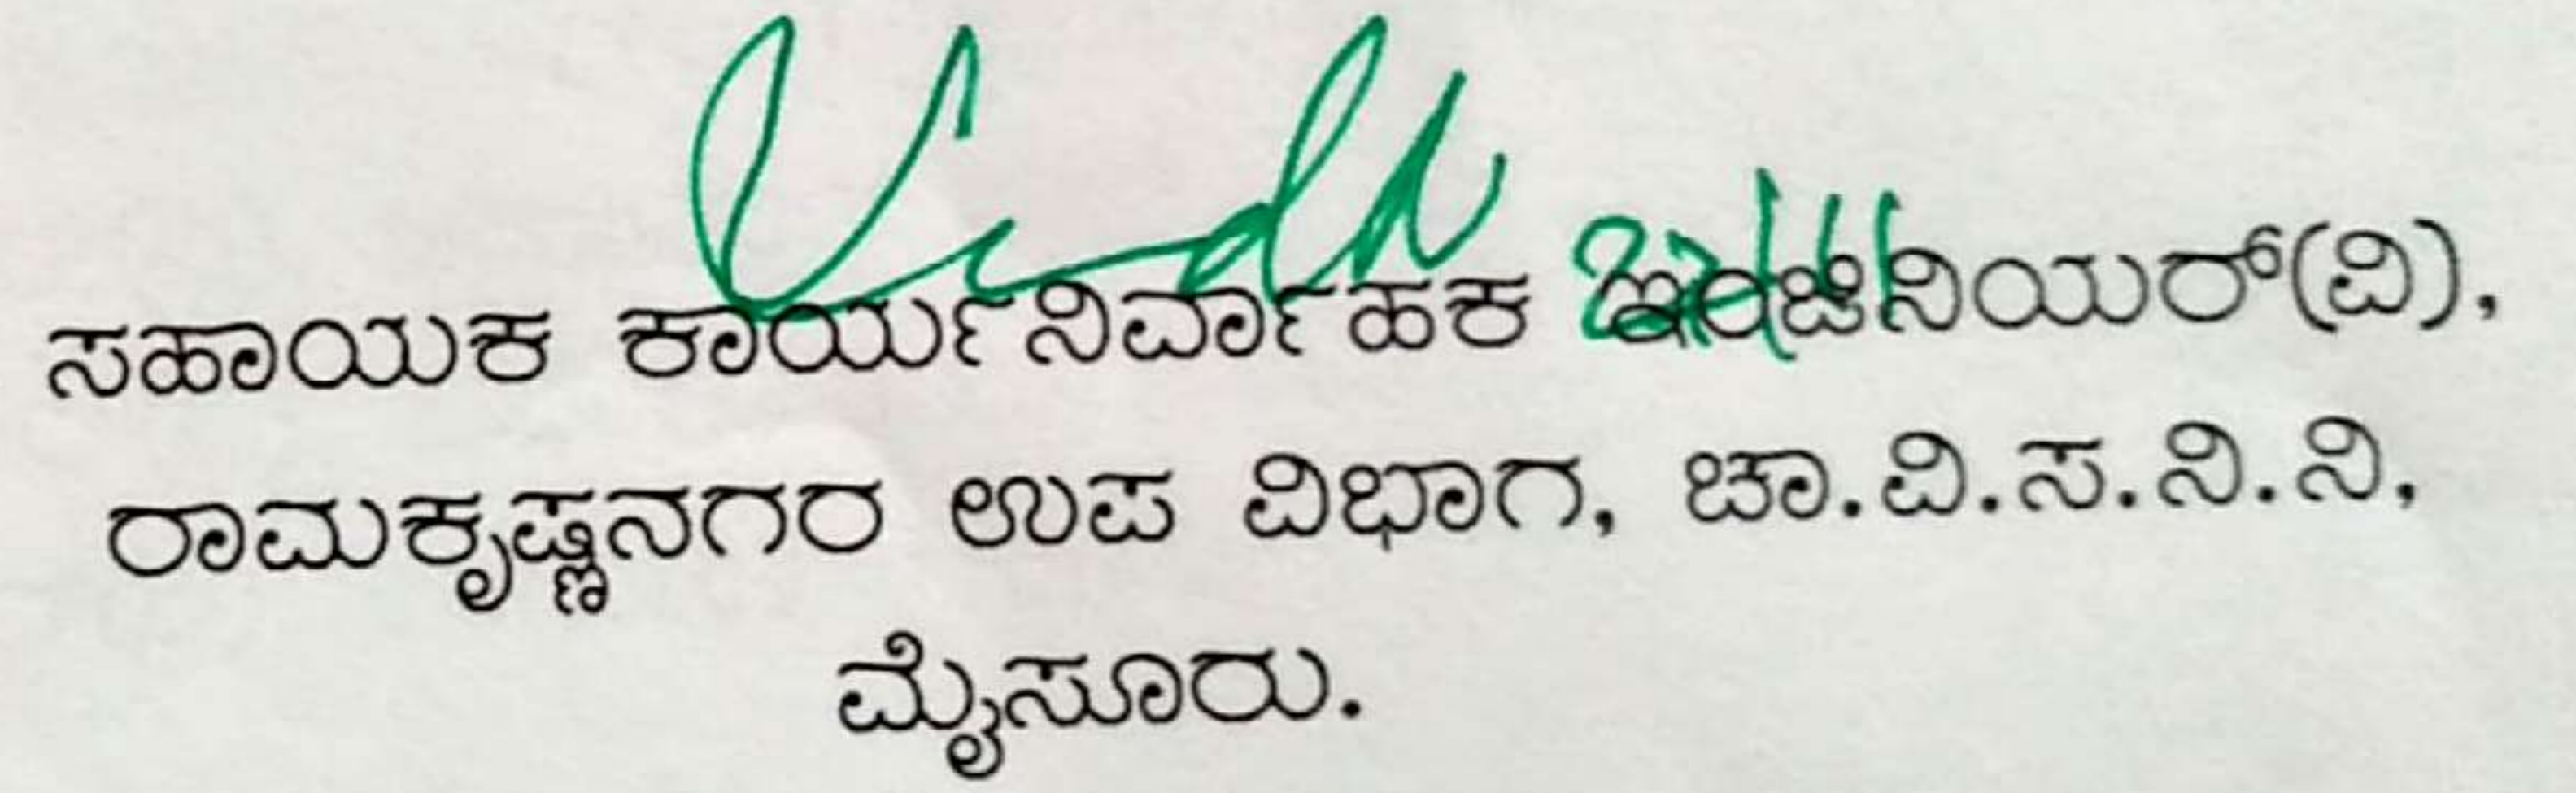 ಸಹಾಯಕ ಕಾರ್ಯನಿರ್ವಾಹಕ ಇಂಜಿನಿಯರ್(ವಿ),
ರಾಮಕೃಷ್ಣನಗರ ಉಪ ವಿಭಾಗ, ಚಾ.ವಿ.ಸ.ನಿ.ನಿ,
ಮೈಸೂರು.